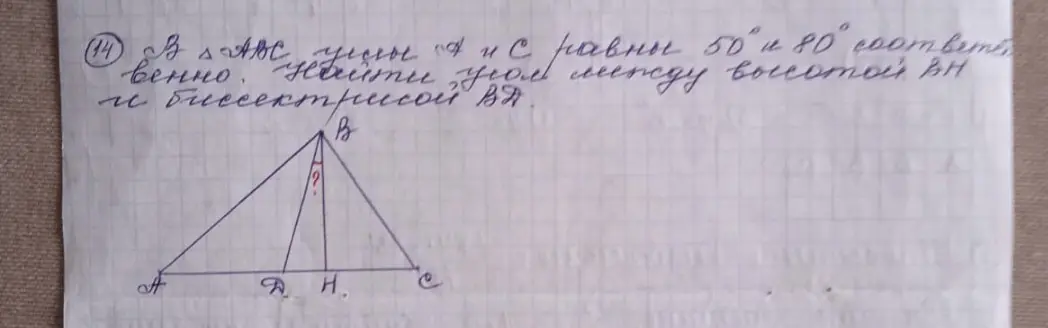 14 В △ ABC углы A и C равны 50° и 80° соответст
венно. Найти угол между высотой BH
и биссектрисой BД.
B
?
A Д. H. C